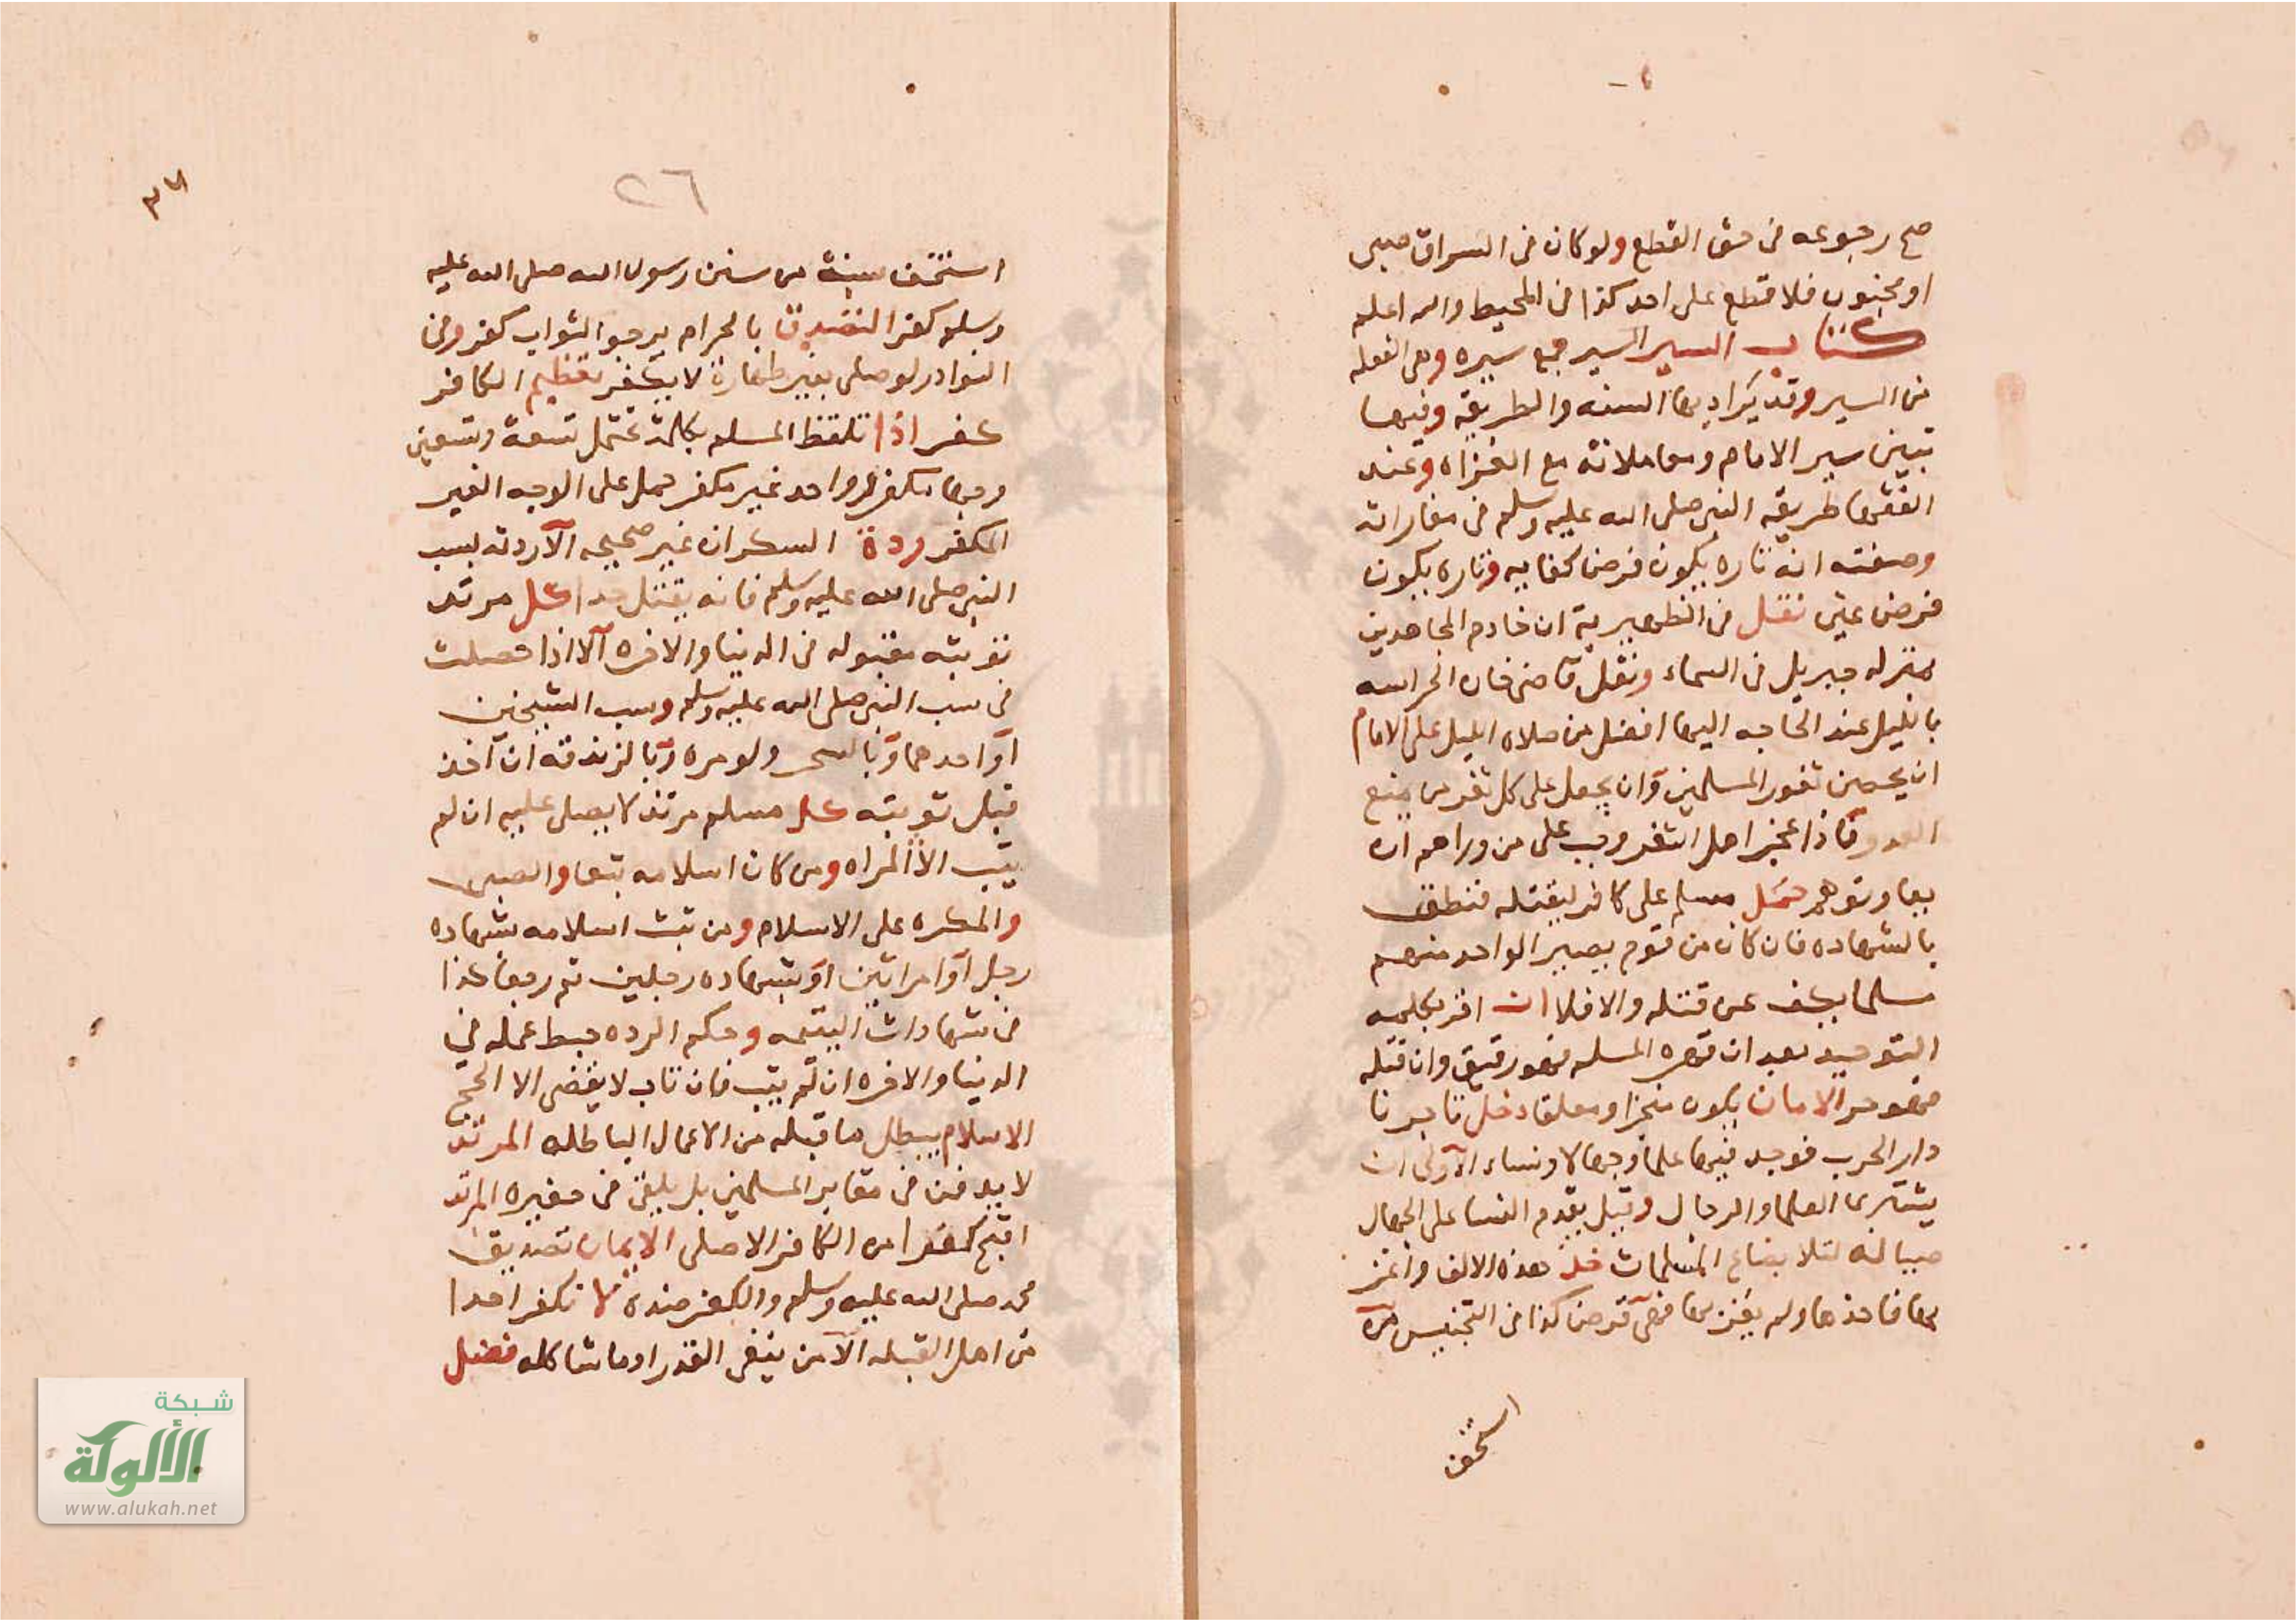 صح رجوعه في حق القطع ولو كان في السراق صبى
او مجنون فلا قطع على احد كذا في المحيط والله اعلم
كتاب السير السير جمع سيره وهى الفعله
من السير وقد يراد بها السنه والطريقه وفيها
تبين سير الامام ومعاملاته مع الغزاه وعند
الفقها طريقه النبي صلى الله عليه وسلم في مغازاته
وصفته انه تاره يكون فرض كفايه وتاره يكون
فرض عين نقل في الظهيرية ان خادم المجاهدين
بمنزله جبريل في السماء ونقل قاضى خان الحراسه
بالليل عند الحاجه اليها افضل من صلاه الليل على الامام
ان يحصن ثغور المسلمين وان يجعل على كل ثغر من يمنع
العدو فاذا عجز اهل الثغر وجب على من وراهم ان
يعاونوهم حمل مسلم على كافر ليقتله فنطق
بالشهاده فان كان من قوم يصير الواحد منهم
مسلما يكف عن قتله والا فلا ان اقر بكلمه
التوحيد بعد ان قهره المسلم فهو رقيق وان قبله
فهو حر الامان يكون منجزا ومعلقا دخل تاجرنا
دار الحرب فوجد فيها علما وجهالا ونساء الاولى ان
يشترى العلما والرجال وقيل يقدم النسا على الجهال
صيانة لئلا يضاع المسلمات خذ هذه الالف واغز
بها فاخذها ولم يغز بها فهى قرض كذا في التجنيس من
استخف
٢٦
استخف بسنة من سنن رسول الله صلى الله عليه
وسلم كفر التصدق بالحرام يرجو الثواب كفر وفى
النوادر لو صلى بغير طهارة لا يكفر تعظيم الكافر
كفر اذا تلفظ المسلم بكلمة تحتمل تسعة وتسعين
وجها مكفر وواحد غير مكفر حمل على الوجه الغير
المكفر ردة السكران غير صحيحه الا ردته بسب
النبي صلى الله عليه وسلم فانه يقتل حدا كل مرتد
توبته مقبوله في الدنيا والاخره الا اذا حصلت
في سب النبي صلى الله عليه وسلم وسب الشيخين
او احدهما وبالسحر ولو مره وبالزندقه ان اخذ
قبل توبته كل مسلم مرتد لا يصلى عليه ان لم
يتب الا المراه ومن كان اسلامه تبعا والصبى
والمكره على الاسلام ومن ثبت اسلامه بشهاده
رجل او امراتين او بشهاده رجلين ثم رجعا كذا
في شهادات اليتيمه وحكم الرده حبط عمله في
الدنيا والاخره ان لم يتب فان تاب لا يقضى الا الحج
الاسلام يبطل ما قبله من الاعمال الباطله المرتد
لا يدفن في مقابر المسلمين بل يلقى في حفيره المرتد
اقبح كفرا من الكافر الاصلى الايمان تصديق
محمد صلى الله عليه وسلم والكفر ضده لا نكفر احدا
من اهل القبله الا من ينفى القدر او ما شاكله فضل
شبكة
الألوكة
www.alukah.net